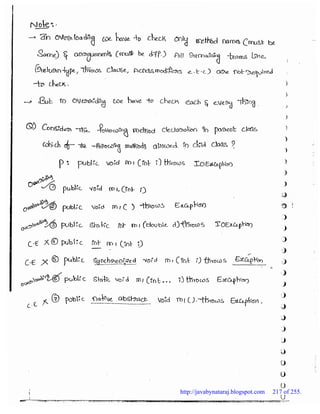 Note:-
→ In overloading we have to check only method names (must be
same) & arguments (must be diff.) All remaining terms like
(return-type, Throws clause, Access modifiers e.t.c) are not required
to check.
→ But in overriding we have to check each & every thing.
Q) Consider the following method declaration in parent class
which of the following methods allowed in child class ?
P : public void m1 (int i) throws IOException
overriding ✓ ① public void m1 (int i)
overloading ✓ ② public void m1 ( ) throws Exception
overloading ✓ ③ public static int m1 (double d) throws IOException
C.E X ④ public int m1 (int i)
C.E X ⑤ public synchronized void m1 (int i) throws Exception
overloading ✓ ⑥ public static void m1 (int... i) throws Exception
C.E X ⑦ public native abstract void m1 ( ) throws Exception.
http://javabynataraj.blogspot.com 217 of 255.